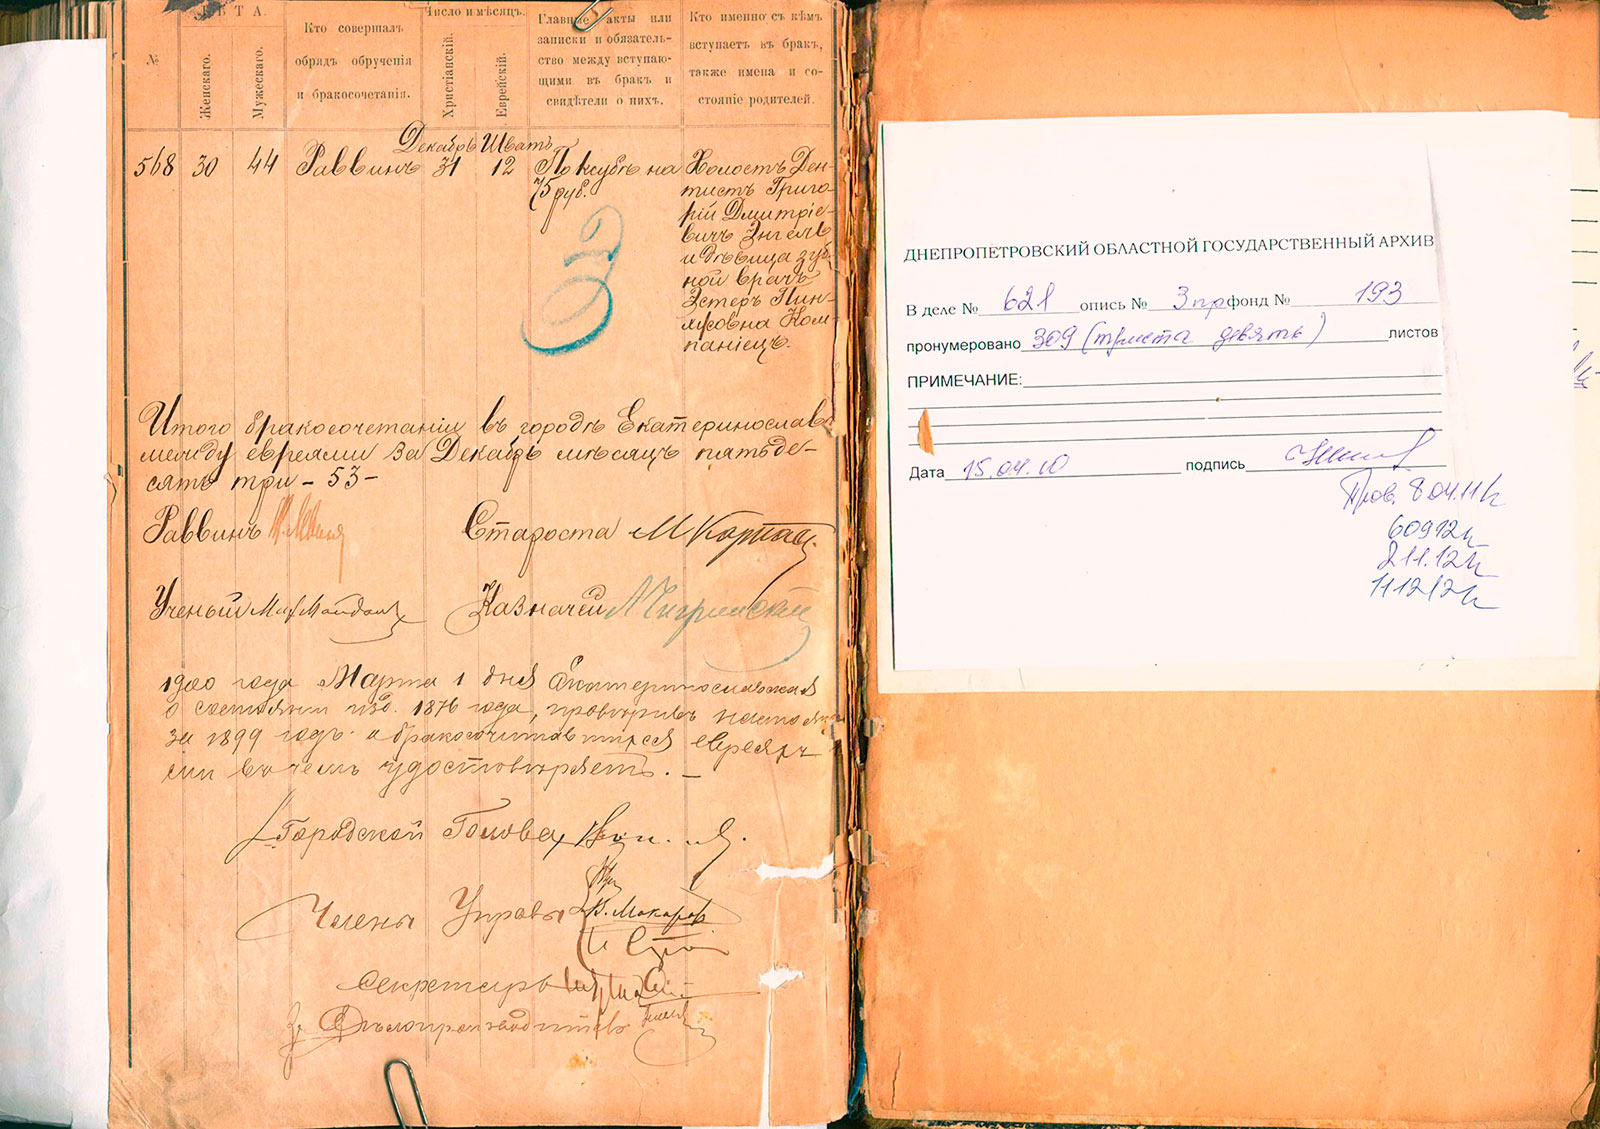 ЛѢТА.
№
Женскаго.
Мужескаго.
Кто совершалъ
обрядъ обрученія
и бракосочетанія.
Число и мѣсяцъ.
Христіанскій.
Еврейскій.
Главные акты или
записки и обязатель-
ство между вступаю-
щими въ бракъ и
свидѣтели о нихъ.
Кто именно съ кѣмъ
вступаетъ въ бракъ,
также имена и со-
стояніе родителей.
Декабрь Шватъ
568 30 44 Раввинъ 31 12
По ксубѣ на
75 руб.
Холостъ Ден-
тистъ Григо-
рій Дмитріе-
вичъ Энгель
и дѣвица зуб-
ной врачъ
Эстеръ Пин-
хусовна Ком-
паніецъ.
Итого бракосочетаній въ городѣ Екатеринославѣ
между евреями за Декабрь мѣсяцъ пятьде-
сятъ три - 53 -
Раввинъ Староста М Карпас
Ученый Майдан Казначей
1900 года Марта 1 дня Екатеринославская
о состояніи 1876 года, провѣривъ настоя
за 1899 годъ о бракосочетавшихся евреяхъ
въ чемъ удостовѣряетъ. —
Городской Голова
Члены Управы
В. Макаров
Секретарь
Дѣлопроизводитель
ДНЕПРОПЕТРОВСКИЙ ОБЛАСТНОЙ ГОСУДАРСТВЕННЫЙ АРХИВ
В деле № 621 опись № 3пр фонд № 193
пронумеровано 309 (триста девять) листов
ПРИМЕЧАНИЕ:
Дата 15.04.10 подпись
Пров. 8 04.11
60912
211.12
111212